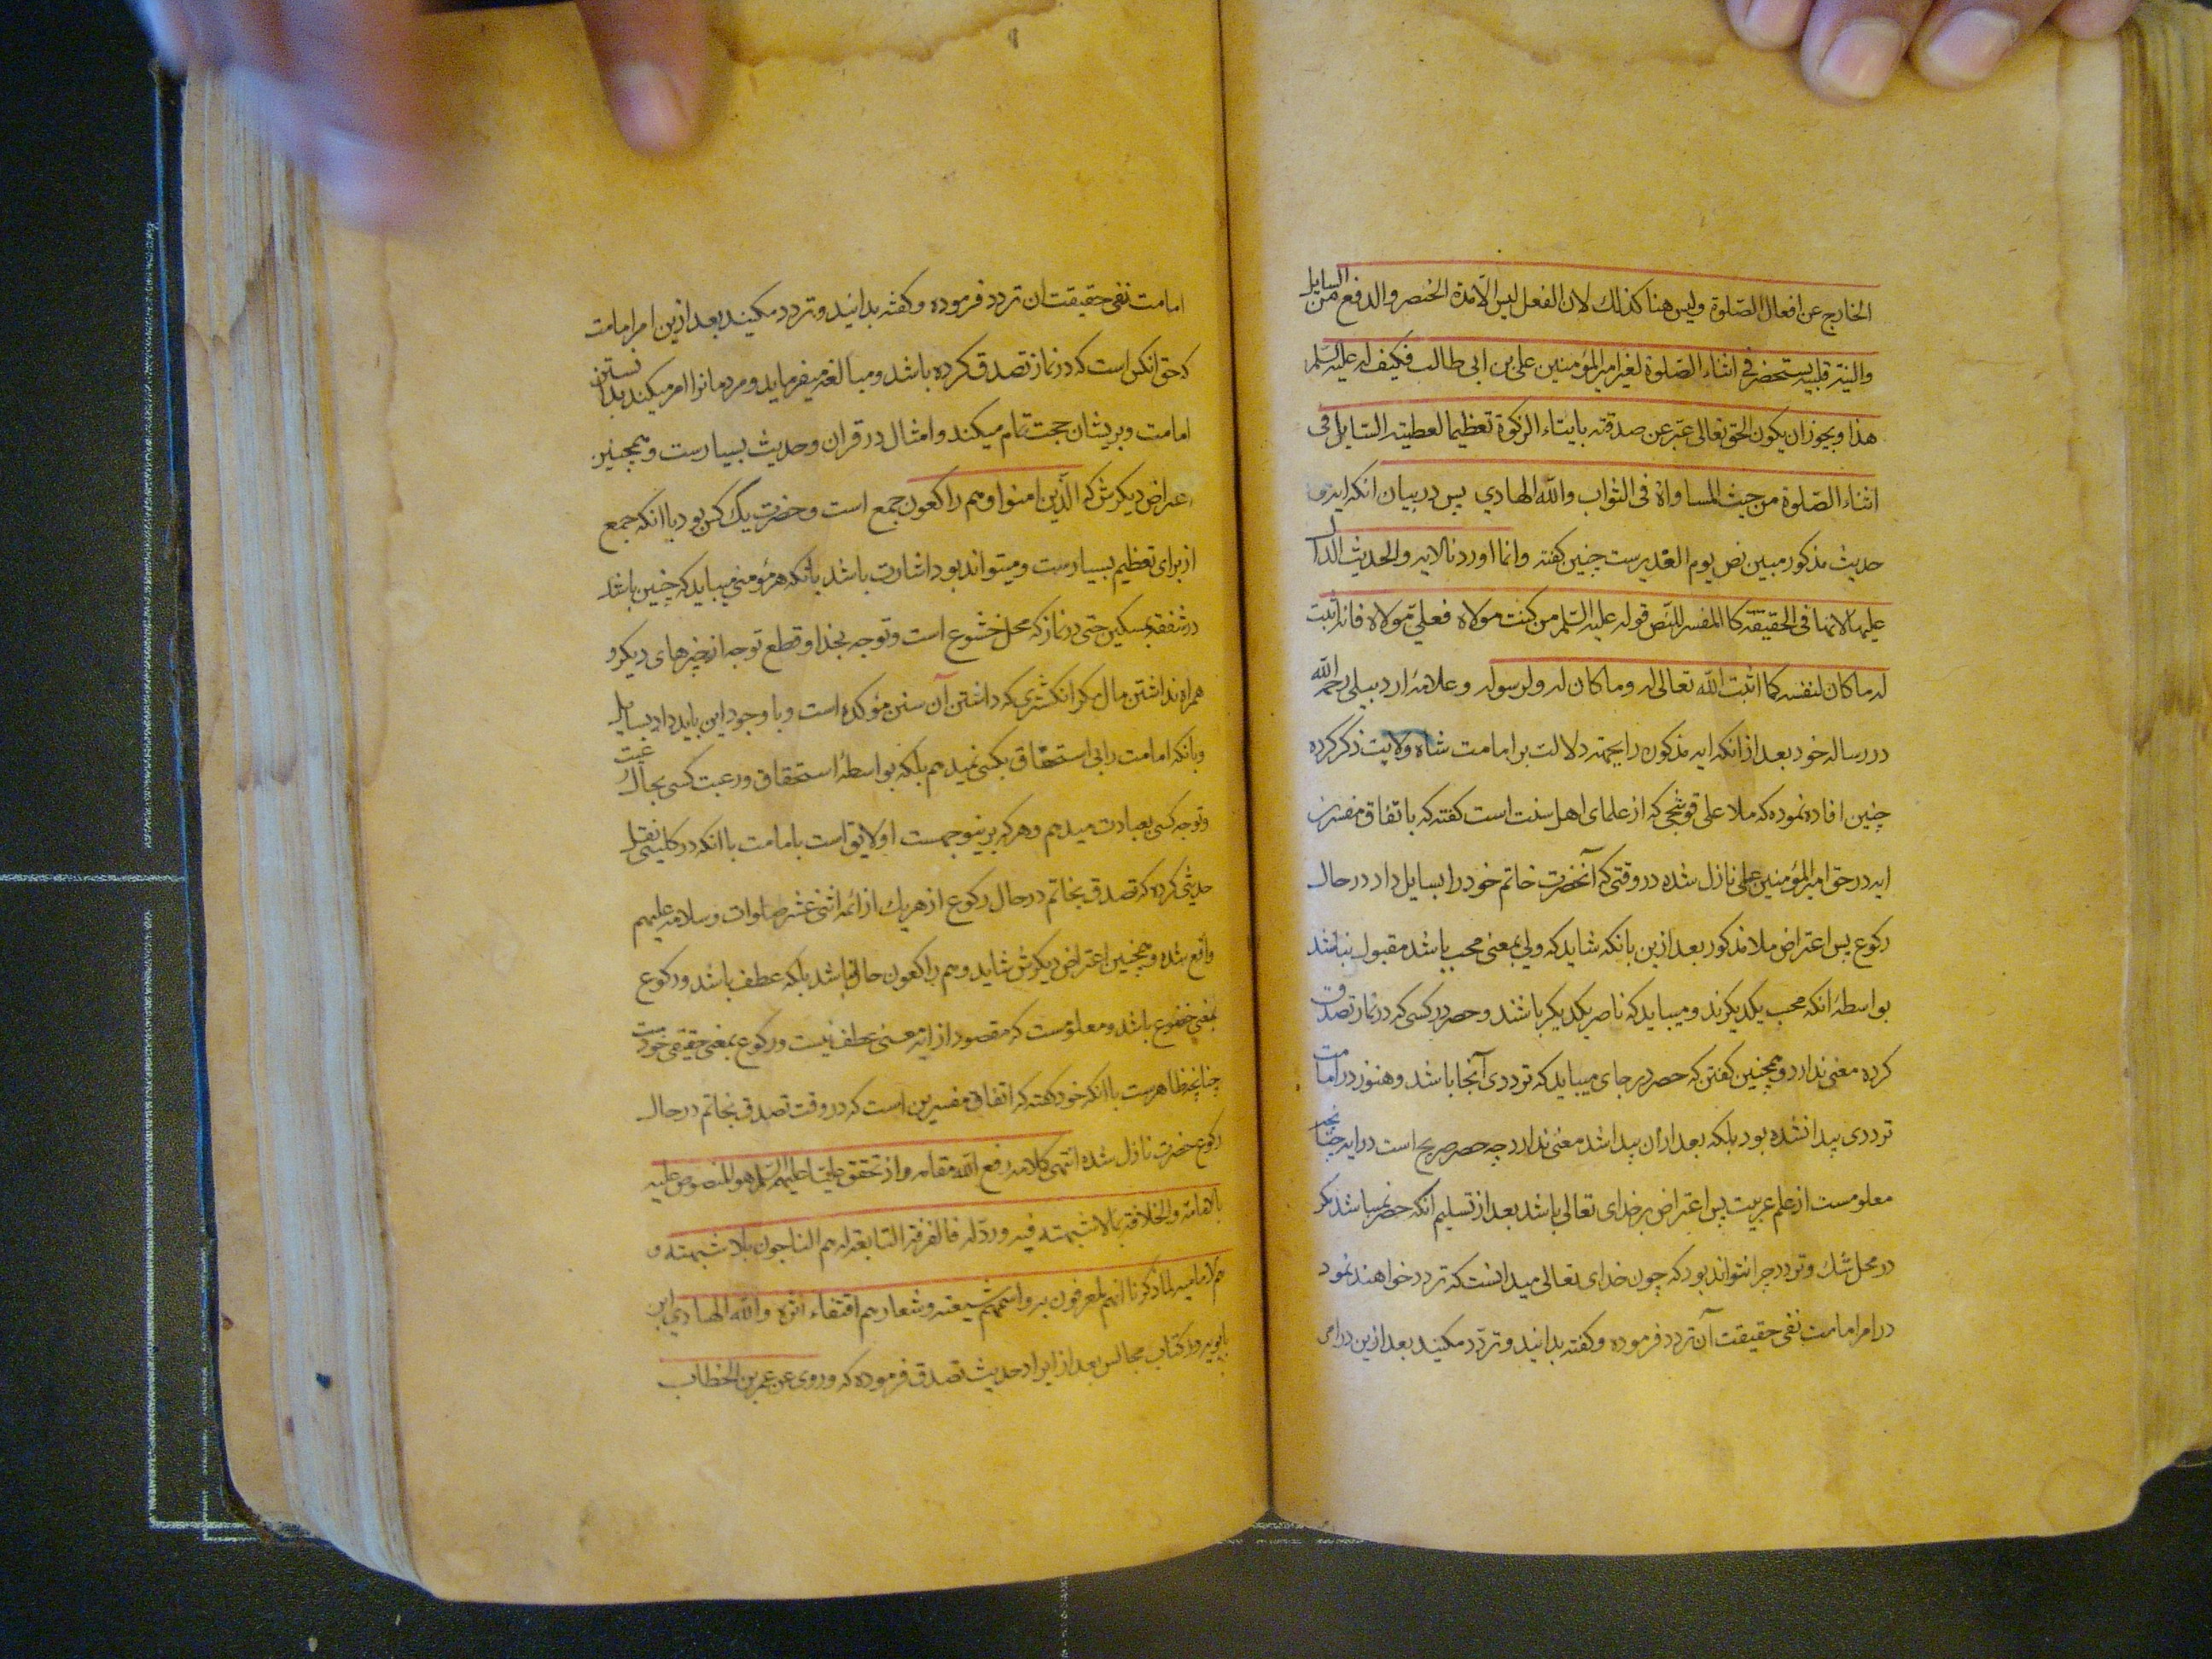 الخارج عن افعال الصلوة وليس هنا كذلك لان الفعل ليس الا مدة الخنصر والدفع من السایل
والنیة قلبیه یستحضر فی اثناء الصلوة لغیر امیرالمؤمنین علی بن ابی طالب فکیف له علیه السلم
هذا ویجوز ان یکون الحق تعالی عبر عن صدقته بایتاء الزکوة تعظیما لعطیته السایل فی
اثناء الصلوة من حیث المساواة فی الثواب والله الهادی پس در بیان انکه ایه و
حدیث مذکور مبین نص یوم الغدیرست چنین کفته وانما اوردنا الایه والحدیث الدال
علیها لانها فی الحقیقة کالمفسر للنص قوله علیه السلم من کنت مولاه فعلی مولاه فانه اثبت
له ما کان لنفسه کما اثبت الله تعالی له وما کان له ولرسوله وعلامهٔ اردبیلی رحمه الله
در رساله خود بعد از انکه ایه مذکوره را بجهة دلالت بر امامت شاه ولایت ذکر کرده
چنین افاده نموده که ملا علی قوشجی که از علمای اهل سنت است کفته که باتفاق مفسرین
ایه در حق امیرالمؤمنین علی نازل شده در وقتی که آنحضرت خاتم خود را بسایل داد در حال
رکوع پس اعتراض ملا مذکور بعد ازین بانکه شاید که ولی بمعنی محب باشد مقبول نباشد
بواسطهٔ انکه محب یکدیکرند ومیباید که ناصر یکدیکر باشند وحصر در کسی که در نماز تصدق
کرده معنی ندارد وهمچنین کفتن که حصر در جای میباید که ترددی آنجا باشد وهنوز در امامت
ترددی پیدا نشده بود بلکه بعد از ان پیدا شد معنی ندارد چه حصر صریح است در ایه چنانچه
معلومست از علم عربیت پس اعتراض بر خدای تعالی باشد بعد از تسلیم انکه حصر نمیباشد مکر
در محل شک وتردد چرا نتواند بود که چون خدای تعالی میدانست که تردد خواهند نمود
در امر امامت نفی حقیقت آن تردد فرموده وکفته بدانید وتردد مکنید بعد ازین در امر
امامت نفی حقیقت ان تردد فرموده وکفته بدانید وتردد مکنید بعد ازین امر امامت
که حق انکس است که در نماز تصدق کرده باشد ومبالغه میفرماید ومردمانرا امر میکند بدانستن
امامت وبریشان حجت تمام میکند وامثال در قران وحدیث بسیارست وهمچنین
اعتراض دیکرش که الذین امنوا وهم راکعون جمع است وحضرت یک کس بود باانکه جمع
از برای تعظیم بسیارست ومیتواند بود اشارت باشد بانکه هر مؤمنی میباید که چنین باشد
در شفقه بمسکین حتی در نماز که محل خشوع است وتوجه بخدا وقطع توجه از چیزهای دیکر و
همراه نداشتن مال مکر انکشتری که داشتن آن سنن مؤکده است وباوجود این باید داد بسایل
وبانکه امامت را بی استحقاق بکسی نمیدهم بلکه بواسطهٔ استحقاق ورغبت کسی بجانب
وتوجه کسی بعبادت میدهم وهر که برینوجهست او لایق است بامامت باانکه در کلینی نقل
حدیثی کرده که تصدق بخاتم در حال رکوع از هریک از ائمه اثنی عشر صلوات وسلامه علیهم
واقع شده وهمچنین اعتراض دیکرش شاید وهم راکعون حال نباشد بلکه عطف باشد ورکوع
بمعنی خضوع باشد ومعلومست که مقصود از ایه معنی عطف نیست ورکوع بمعنی حقیقی خودست
چنانچه ظاهرست باانکه خود کفته که اتفاق مفسرین است که در وقت تصدق بخاتم در حال
رکوع حضرت نازل شده انتهی کلامه رفع الله مقامه واذ تحقق علیا علیه السلم هو المنصوص علیه
بالامامة والخلافة بما لا شبهة فیه ورد له فالفرقة التابعة له هم الناجون بلا شبهة و
هم الامامیه لما ذکرنا انهم المعرفون به واسمهم شیعته وشعارهم اقتفاء اثره والله الهادی ابن
بابویه در کتاب مجالس بعد از ایراد حدیث تصدق فرموده که وروی عن عمر بن الخطاب